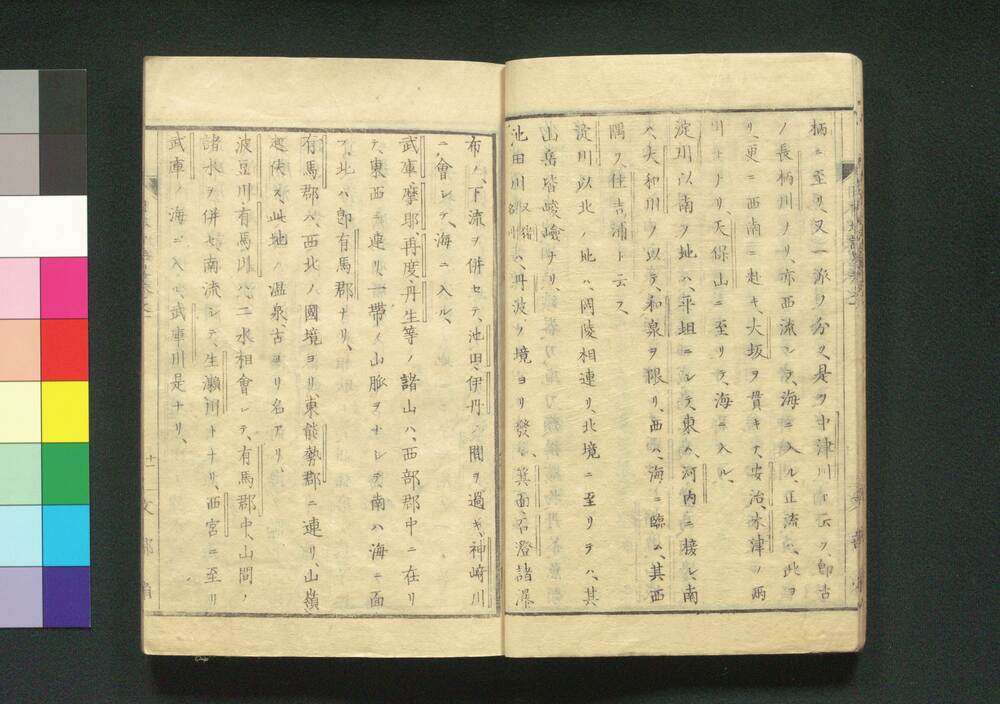 柄ニ至リ、又一派ヲ分ツ、是ヲ中津川ト云フ、即古
ノ長柄川ナリ、亦西流シテ、海ニ入ル、正流ハ、此ヨ
リ、更ニ西南ニ赴キ、大坂ヲ貫キテ、安治、木津ノ兩
川トナリ、天保山ニ至リテ、海ニ入ル、
淀川以南ノ地ハ、平坦ニシテ、東ハ、河内ニ接シ、南
ハ、大和川ヲ以テ、和泉ヲ限リ、西ハ、海ニ臨ム、其西
隅ヲ、住吉浦ト云フ、
淀川以北ノ地ハ、岡陵相連リ、北境ニ至リテハ、其
山岳峻嶮ナリ、
池田川又猪名川ハ、丹波ノ境ヨリ發シ、箕面、石澄諸瀑
布ノ、下流ヲ併セテ、池田、伊丹ノ間ヲ過ギ、神崎川
ニ會シテ、海ニ入ル、
武庫、摩耶、再度、丹生等ノ諸山ハ、西部郡中ニ在リ
テ、東西ニ連リ、一帶ノ山脈ヲナシテ、南ハ海ニ面
シ、北ハ即有馬郡ナリ、
有馬郡ハ、西北ノ國境ヨリ、東能勢郡ニ連リ、山嶺
ス、此地ハ温泉、古ヨリ名アリ、
波豆川、有馬川ハ、二水相會シテ、有馬郡中、山間ノ
諸水ヲ併セ、南流シテ、生瀬川トナリ、西宮ニ至リ
武庫ノ海ニ入ル、武庫川是ナリ、
十一
文部省